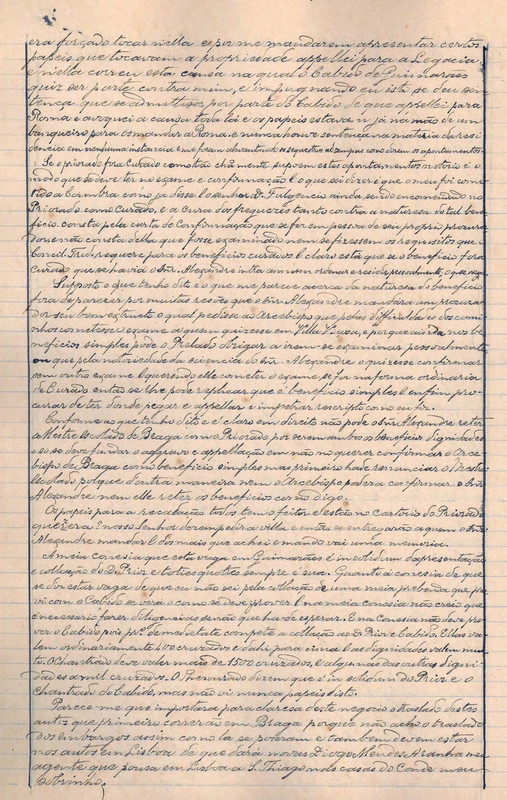 era forçado tocar n'ella e por me mandarem apresentar certos
papeis que tocavam a propriedade appellei para a Legacia,
e n'ella correu esta causa na qual o Cabido de Guimarães
quiz ser parte contra mim, e impugnando eu isto se deu sen-
tença que se admittisse por parte do Cabido de que appellei para
Roma e avoquei a causa toda lá e os papeis estavam já na mão de um
banqueiro para os mandar a Roma e nunca houve sentença na materia da resi-
dencia em nenhuma instancia e me foram alevantados sequestros ao tempo como diram os apontamentos.
Se o piorado fora Curado como tão chãmente suppoem estes apontamentos notorio é o
modo que se deve ter no exame e confirmação l o que sei dizer é que o meu foi come-
tido a Coimbra como já disse l o senhor D. Fulgencio ainda sendo encomendado no
Priorado como Curado, e a Cura dos freguezes tanto contra a natureza de tal bene-
ficio consta pela carta de Confirmação que se fez em pessoa de seu proprio procura-
dor e não consta della que fosse examinado nem se fizessem os requesitos que
Concil. Trid. requere para os beneficios curados l claro está que se o beneficio fora
Curado que se havia o Snr. Alexandre intra annum ordenar e residir pessoalmente, o que nego.
Supposto o que tenho dito e o que me parece acerca da natureza do beneficio
fora de parecer por muitas resões que o Snr. Alexandre mandára um procura-
dor seu bem instructo o qual pedisse ao Arcebispo que pelas difficuldades dos cami-
nhos cometesse o exame a quem quizesse em Villa Viçosa, e porque ainda nos be-
neficios simples pode o Prelado obrigar a irem-se examinar pessoalmente,
ou que pela notoriedade da sciencia do Snr. Alexandre o quizesse confirmar
sem outro exame l querendo elle cometer o exame se for na forma ordinaria
de Curado então se lhe pode replicar que é beneficio simples l enfim pro-
curar de ter donde pegar e appellar e impetrar rescripto como eu fiz.
Conforme ao que tenho dito e é claro em direito não pode o Snr Alexandre reter
o Mestre Escolado de Braga com o Priorado por serem ambos os beneficios dignidades
e só se deve fundar o aggravo e appellação em não o querer confirmar o Arce-
bispo de Braga como beneficio simples mas primeiro hade renunciar o Mestre
Escolado porque doutra maneira nem o Arcebispo poderá confirmar o Snr
Alexandre nem elle reter os beneficios como digo.
Os papeis para a recadação todos tem o feitor e estão no cartorio do Priorado
que Deus nosso Senhor desempedira a villa e então se entregarão a quem o Snr
Alexandre mandar l dos mais que achei e mando vai uma memoria.
A meia conesia que está vaga em Guimarães é in solidum da presentação
e collação do D. Prior e toties quoties sempre é sua. Quanto á conesia de que
se diz estar vaga de que eu não sei pela collação de uma meia prebenda que pro-
vi com o Cabido se verá o como se deve prover l na meia conesia não creio que
é necessario fazer diligencias senão que hade esperar. E na Conesia não deve pro-
ver o Cabido pois pr.ª de medietate compete a collação ao D. Prior e Cabido. Ellas va-
lem ordinariamente 400 cruzados e dahi para cima l as dignidades valem mui-
to. O Chantrado deve valer mais de 1500 cruzados, e algumas das outras digni-
dades a mil cruzados. O Thesourado dizem que é in solidum do Prior e o
Chantrado do Cabido, mas não vi nunca papeis disto.
Parece me que importára para clareza deste negocio o traslado destes
autos que primeiro correrão em Braga porque não acho o traslado
dos embargos assim como lá se poseram e tambem devem estar
nos autos em Lisboa de que dará novas Diogo Mendes Aranha meu
agente que pousa em Lisboa a S. Thiago nas casas do Conde meu
Sobrinho.